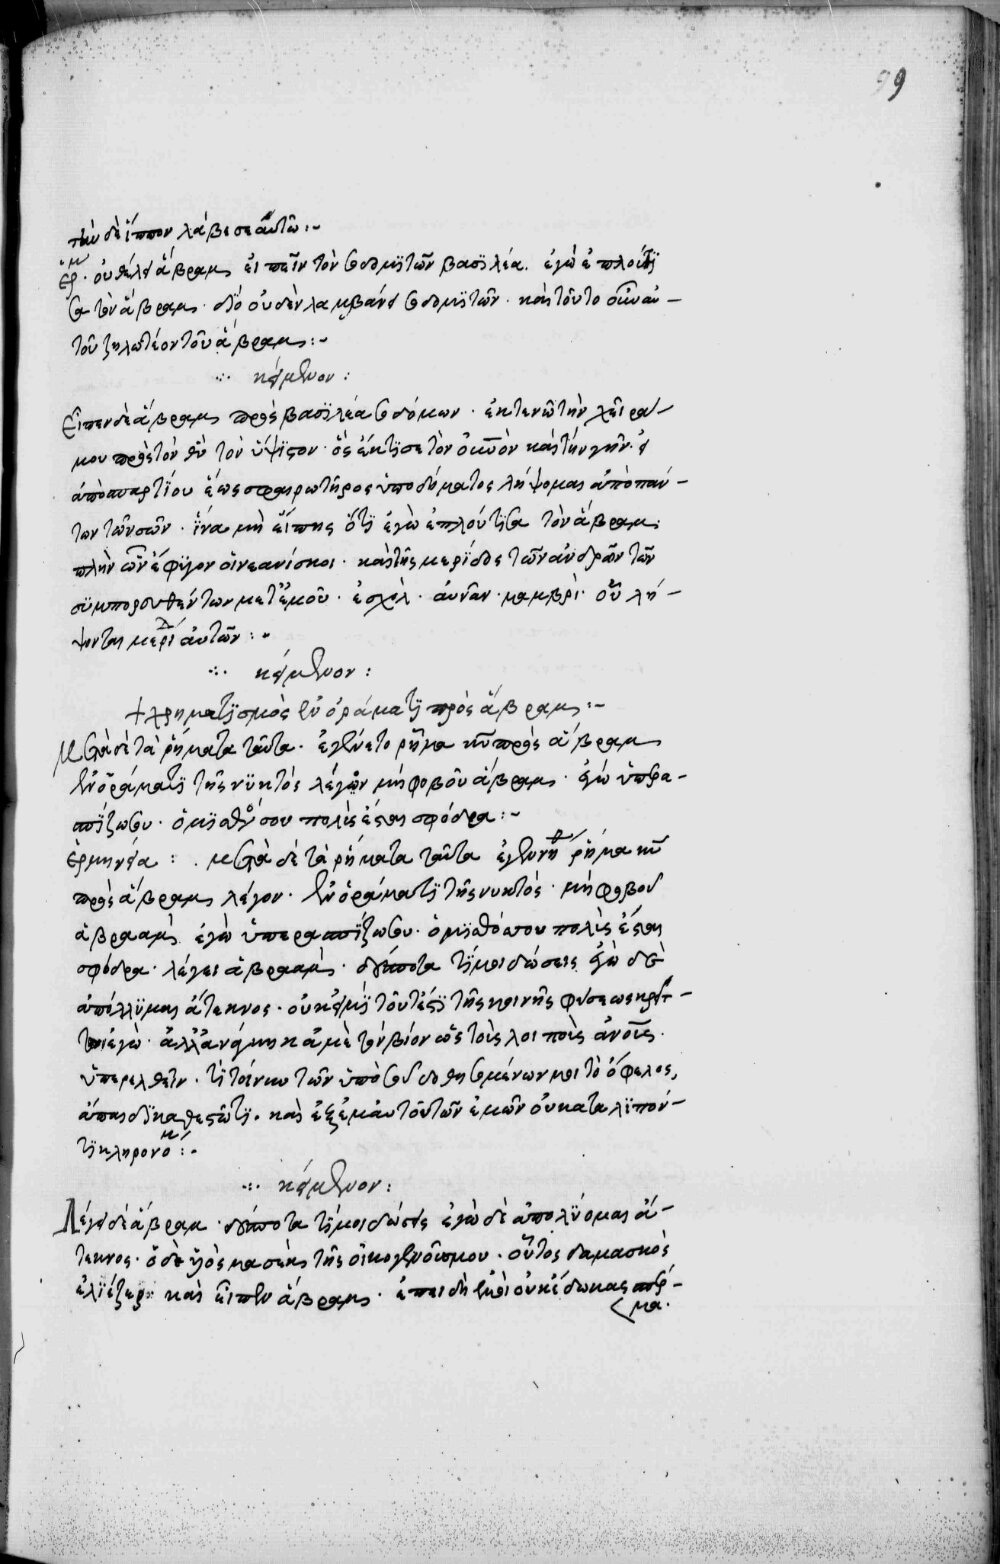 99
τὴν δὲ ἵππον λάβε σεαυτῶ :~
ἑρμ · οὐ θέλει ἅβραμ εἰπεῖν τὸν σοδομϊτῶν βασϊλέα. ἐγὼ ἐπλούτϊ
σα τὸν ἅβραμ · διὸ οὐδὲν λαμβάνει σοδομϊτῶν · καὶ τοῦτο οὖν αὐ –
τοῦ ζηλωτέον τοῦ ἅβραμ :~
κείμενον :
Εἶπεν δὲ ἅβραμ πρὸς βασϊλέα σοδόμων · ἐκτενῶ τὴν χεῖρα
μου πρὸς τὸν θν τὸν ὕψϊστον · ὃς ἔκτϊσε τὸν οὐνὸν καὶ τὴν γῆν · εἰ
ἀπὸ σπαρτΐου ἕως σφαιρωτῆρος ὑποδήματος λήψομαι ἀπὸ πάν –
των τῶν σῶν · ἵνα μὴ εἴπης ὅτϊ ἐγὼ ἐπλούτϊσα τὸν ἅβραμ
πλὴν ὧν ἔφϋγον οἱ νεανίσκοι · καὶ τῆς μερΐδος τῶν ἀνδρῶν τῶν
συμπορευθέντων μετ ἐμοῦ · ἐσχὼλ · αὐνὰν · μαμβρὶ · οὗ λή –
ψονται μερίδ αὐτῶν :~
κείμενον :
+ χρηματϊσμὸς ἐν ὁράματϊ πρὸς ἅβραμ :~
Μετὰ δὲ τὰ ῥήματα ταῦτα · ἐγένετο ρῆμα κυ πρὸς ἅβραμ
ἐν ὁράματϊ τῆς νϋκτὸς λέγων μὴ φοβοῦ ἅβραμ · ἐγώ ὑπερα –
σπΐζω σου · ὁ μϊσθός σου πολὺς ἔσται σφόδρα :~
ἑρμηνεία : · μετὰ δὲ τὰ ρήματα ταῦτα ἐγενήθη ῥῆμα κυ
πρὸς ἅβραμ λέγον · ἐν ὁράματϊ τῆς νυκτὸς · μὴ φοβοῦ
ἀβραὰμ ἐγὼ ὑπερασπΐζω σου · ὁ μϊσθός σου πολὺς ἔσται
σφόδρα · λέγει ἀβραὰμ · δέσποτα τΐ μοι δώσεις ἐγὼ δὲ
ἀπόλλϋμαι ἄτεκνος · οὐκ εἰμϊ τουτέστϊ τῆς κοινῆς φύσεως κρείτ –
των ἐγὼ · ἀλλ ἀνάγκη κἀμὲ τὸν βίον ὡς τοῖς λοιποῖς ἀνοις ·
ὑπερελθεῖν · τΐ τοίνυν τῶν ὑπὸ σοῦ δοθησομένων μοι τὸ ὄφελος,
ἄπαιδι καθεστῶτϊ · καὶ ἐξ ἐμαυτοῦ τῶν ἐμῶν οὐ καταλϊπόν –
τϊ κληρονόμ :~
κείμενον :
Λέγει δὲ ἅβραμ · δέσποτα τΐ μοι δώσεις ἐγὼ δὲ ἀπολΰομαι ἄ –
τεκνος · ὁ δὲ ϋἱὸς μασὲκ τῆς οἰκογενοῦς μου · οὗτος δαμασκὸς
ἐλϊέζερ · καὶ εἶπεν ἅβραμ · ἐπειδὴ ἐμοὶ οὐκ ἔδωκας σπέρ –
μα ·